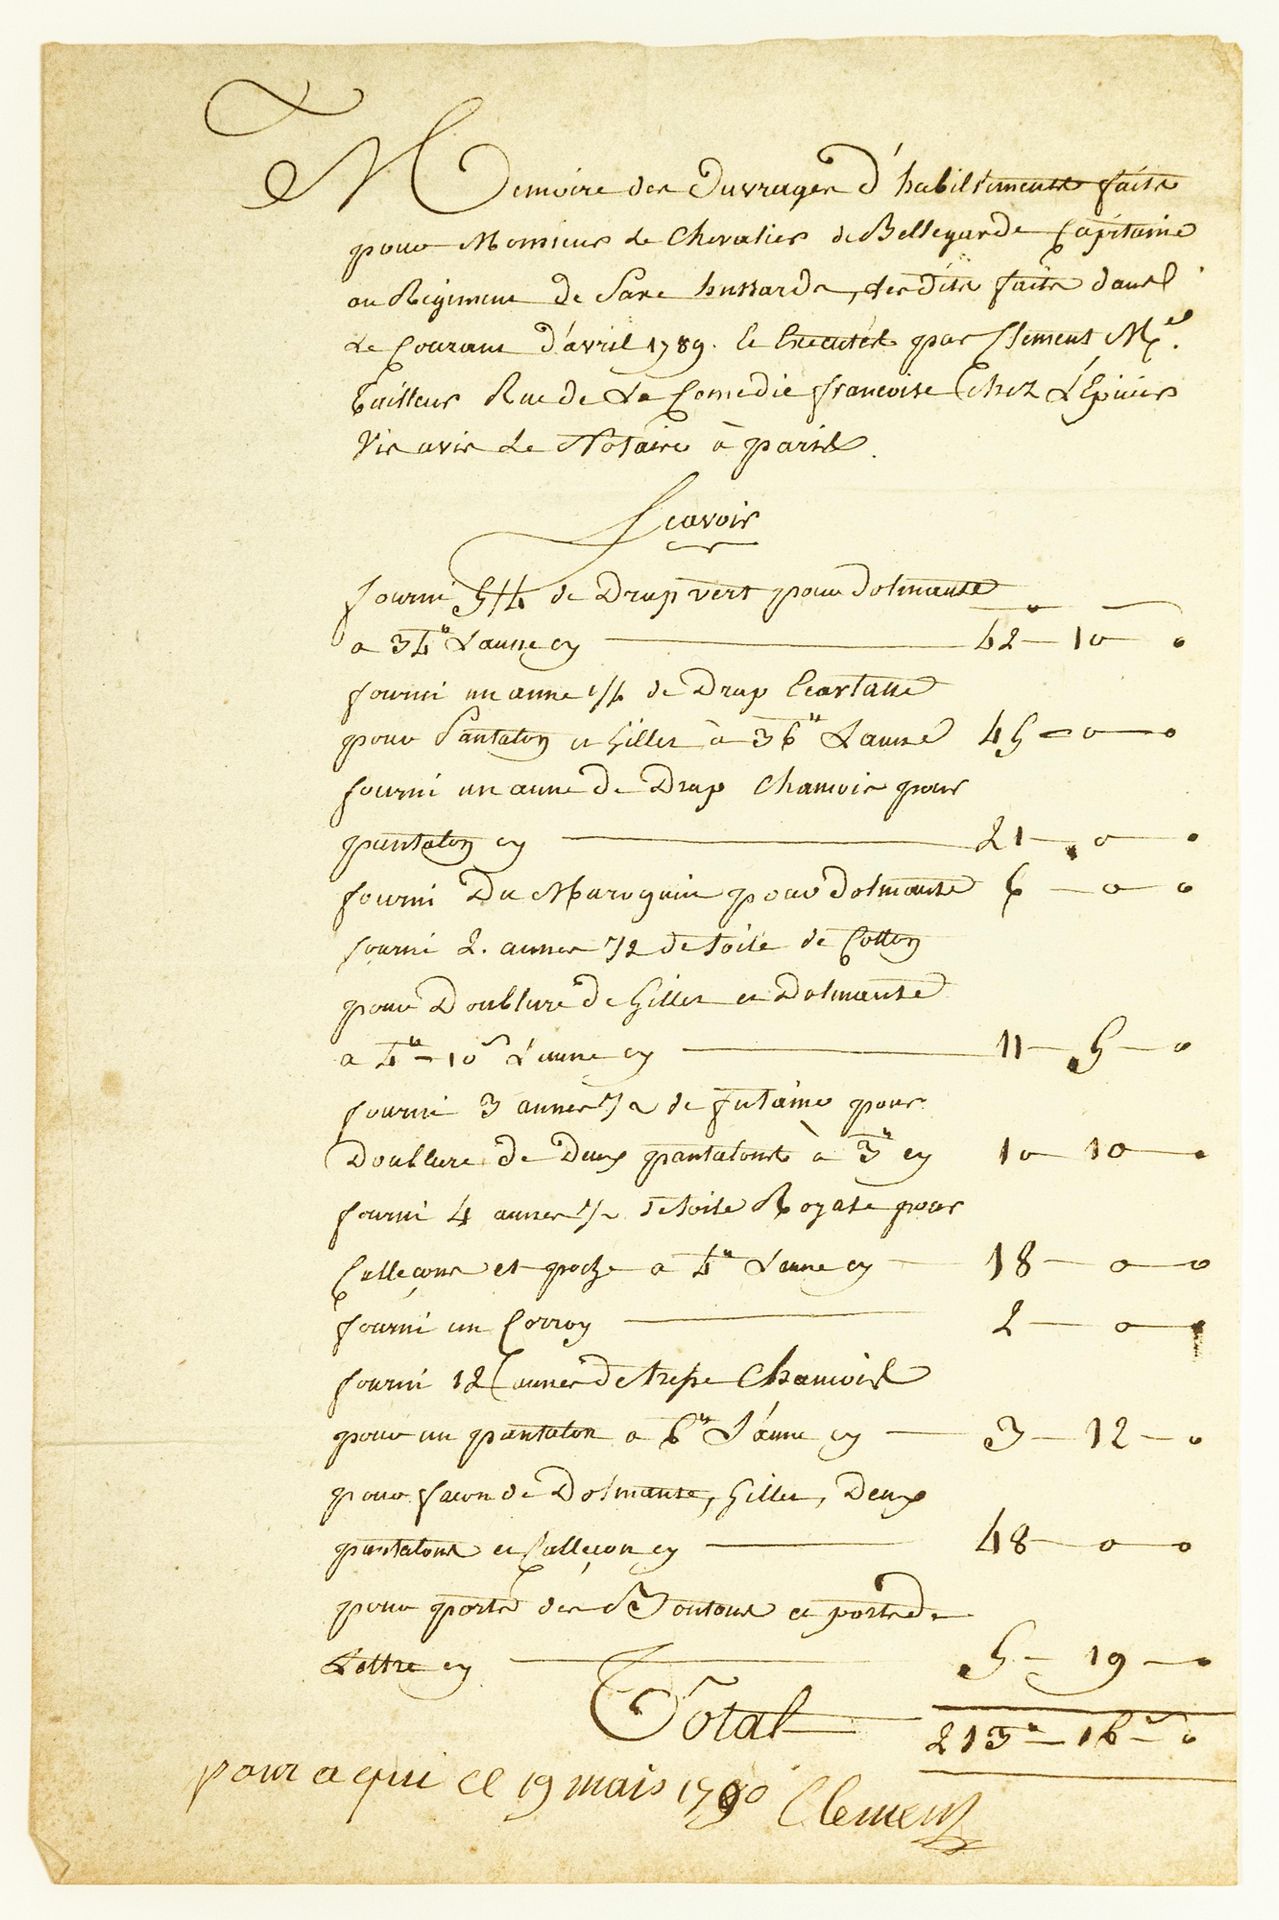 Memoire des Ouvrages d'habillements faits
pour Monsieur le Chevalier de Bellegarde Capitaine
au Regiment de Saxe hussards, les dits faits dans
le Courant d'avril 1789. et Executés par Clement M.e
tailleur Rue de La Comedie francoise Chez L'Epicier
Vis avis le Notaire à paris.
Scavoir
fourni 5/4 de Drap vert pour dolmante
a 34# L'aune cy 42 - 10 - 0
fourni un aune 1/4 de Drap Ecarlatte
pour Pantalon et Gillet à 36# L'aune 45 - 0 - 0
fourni un aune de Drap Chamois pour
pantalon cy 21 - 0 - 0
fourni Du Maroquin pour dolmante 6 - 0 - 0
fourni 2. aunes 1/2 de toile de Cotton
pour Doublure de Gillet et Dolmante
a 4# - 10s L'aune cy 11 - 5 - 0
fourni 3 aunes 1/2 de futaine pour
Doublure de Deux pantalons à 3# cy 10 - 10 - 0
fourni 4 aunes 1/2 de toile Royale pour
Calleçons et poche a 4# L'aune cy 18 - 0 - 0
fourni un Corroy 2 - 0 - 0
fourni 12 aunes de tresse Chamois
pour un pantalon a 6s L'aune cy 3 - 12 - 0
pour facon de Dolmante, Gillet, Deux
pantalons et Calleçon cy 48 - 0 - 0
pour porte des Boutons et porte de
Lettre cy 5 - 19 - 0
Total 213# - 16s - 0
pour aqui ce 19 mais 1790 Clement